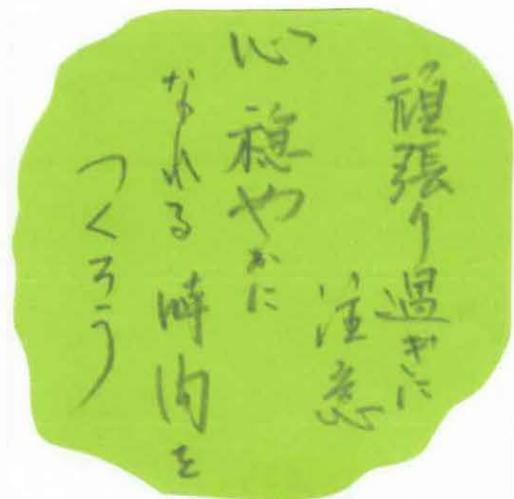 頑張り過ぎに
注意
心穏やかに
なれる時間を
つくろう